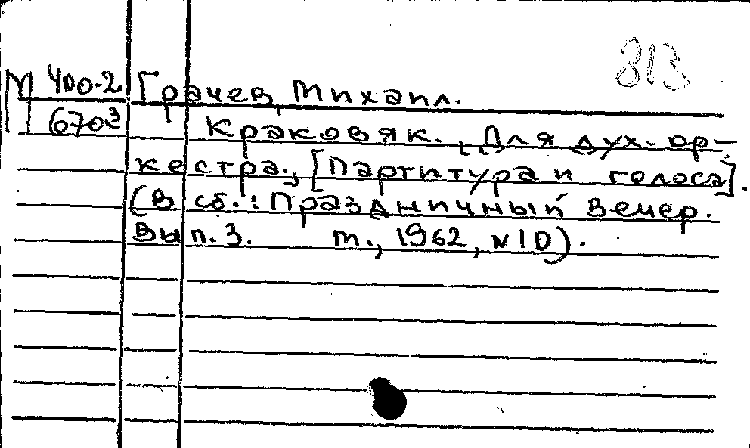 313
М 400-2 Грачев, Михаил.
670³ Краковяк. Для дух. ор-
кестра., [Партитура и голоса].
(В сб.: Праздничный вечер.
Вып. 3. М., 1962, №10).